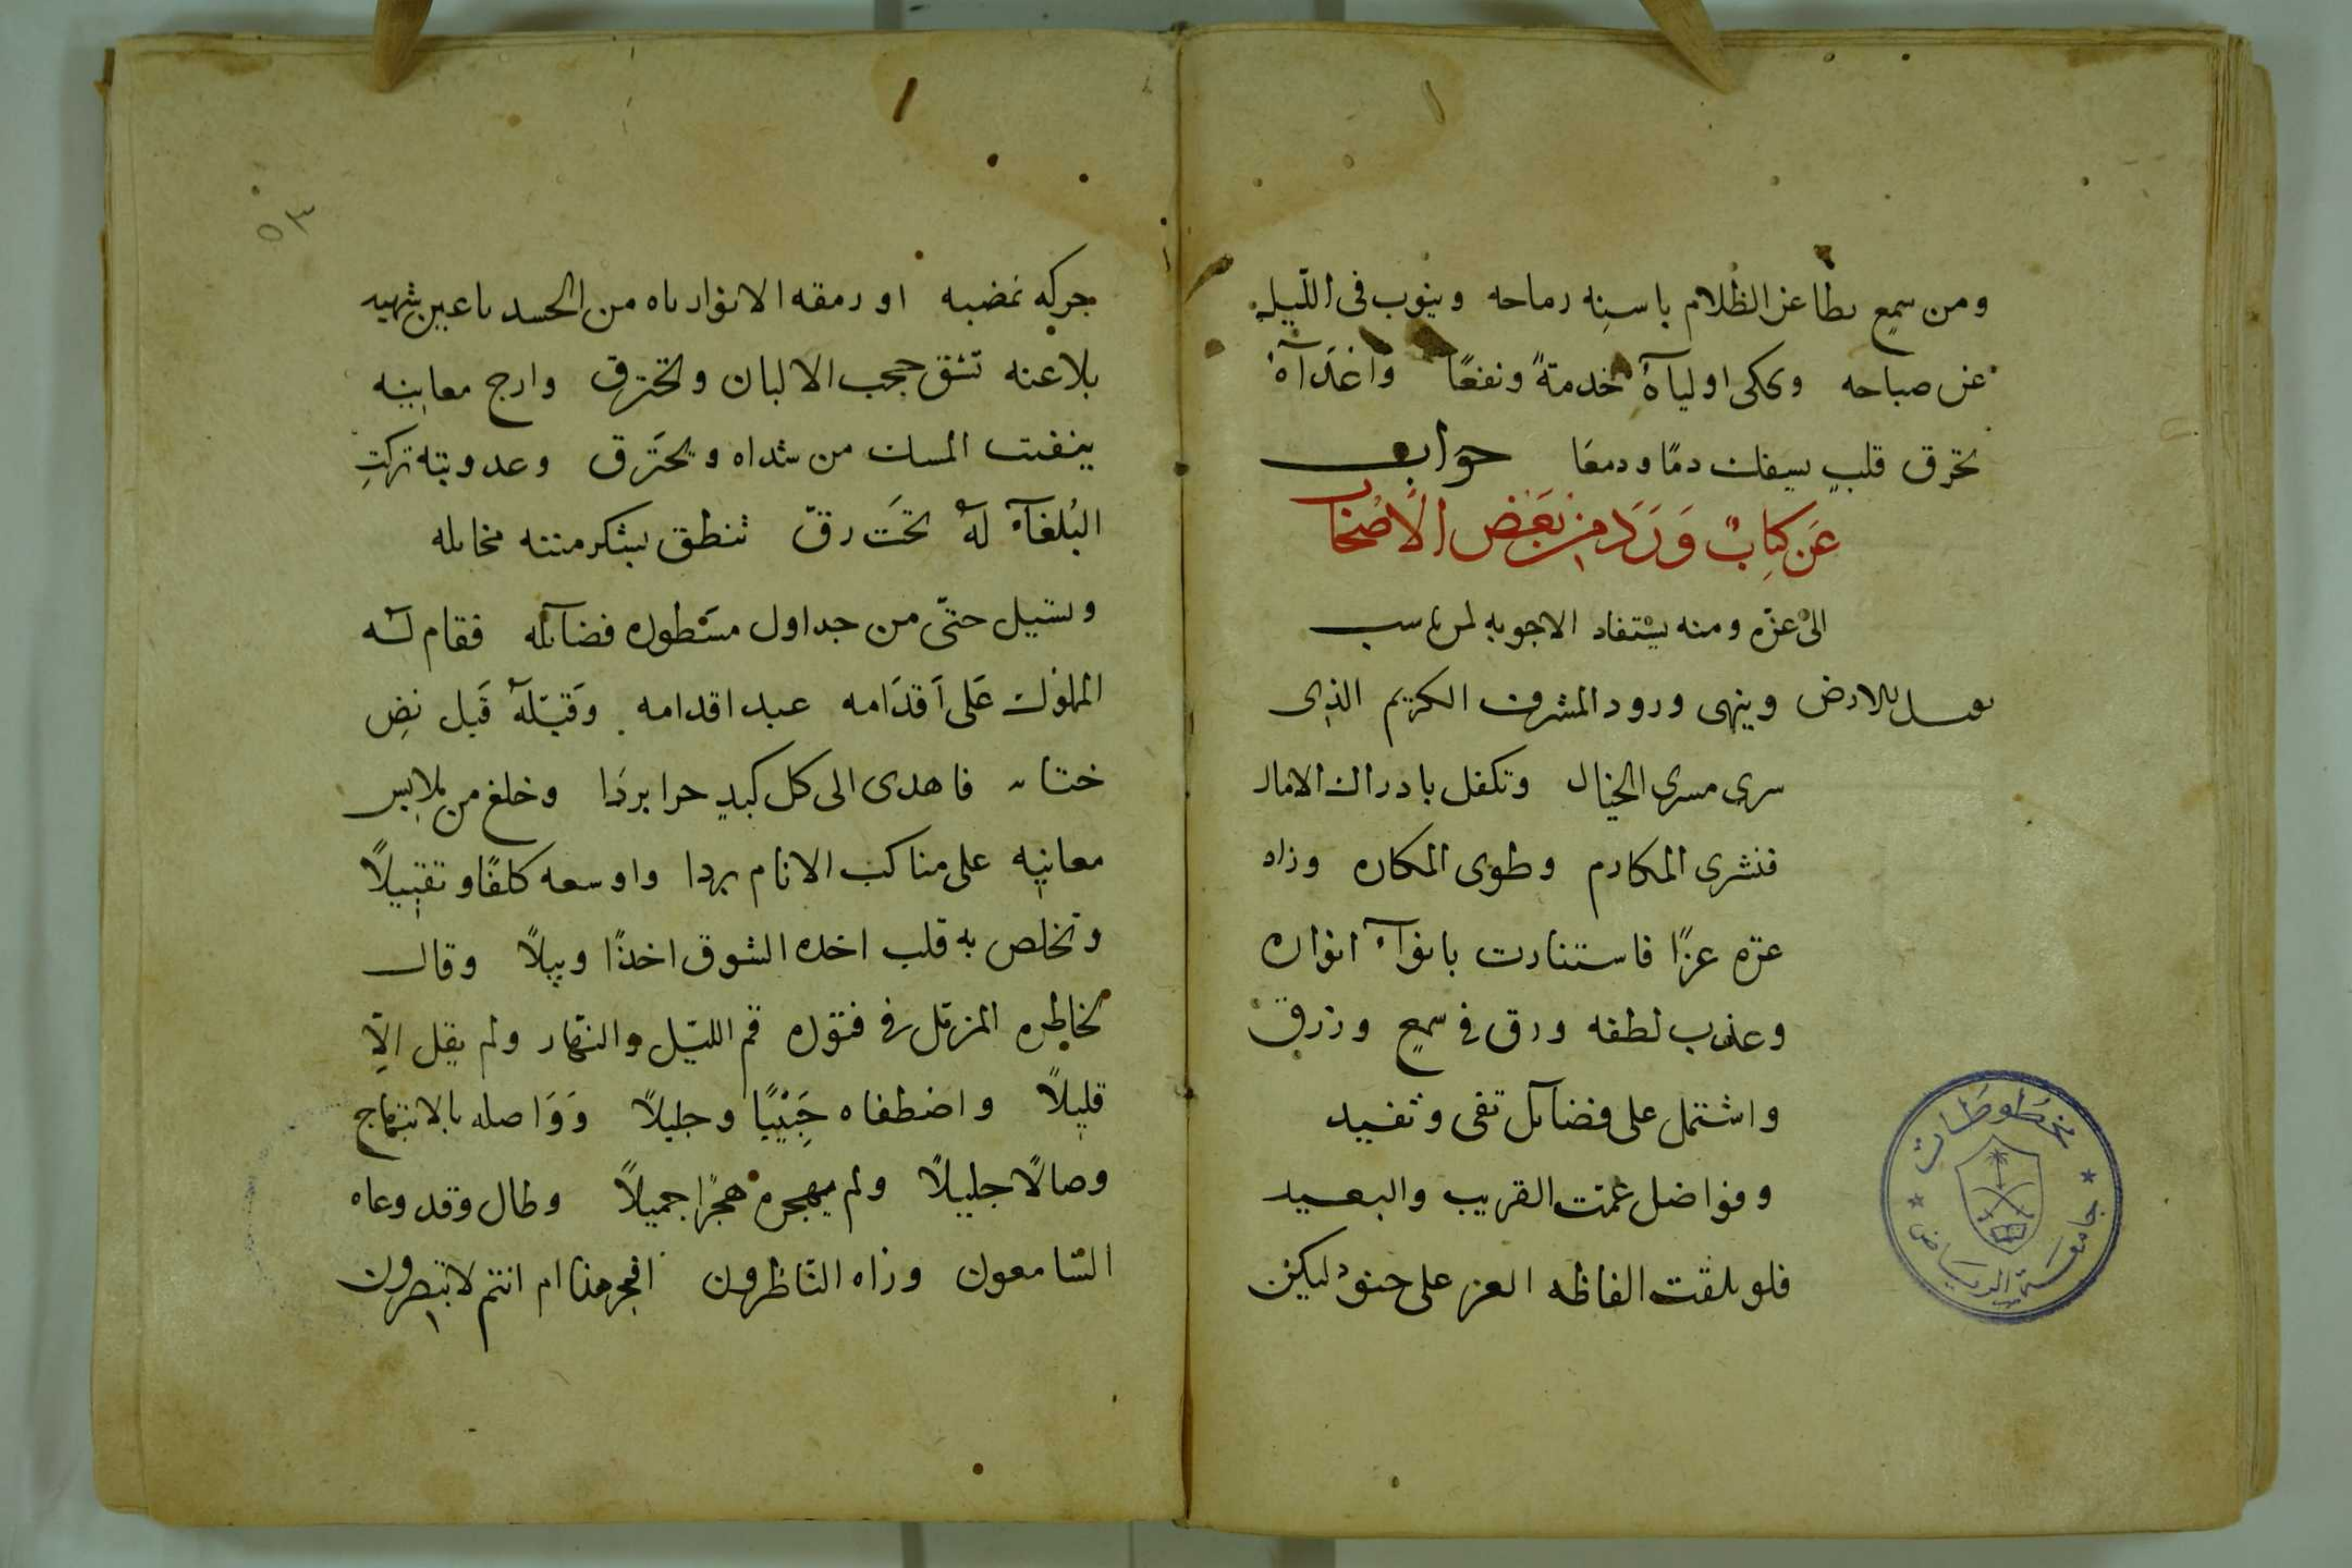 ومن سمع بطاعن الظلام باسنه رماحه وينوب فى الليله
عن صباحه ويحكى اولياۤه خدمةً ونفعًا واعداۤه
تحرق قلبٍ يسفك دمًا ودمعًا جواب
عَن كتابٌ وَرَدَ من بَعْض الأصْحَاب
الى غزه ومنه يستفاد الاجوبه لمن ناسب
يقبل الارض وينهى ورود المشرف الكريم الذى
سرى مسرى الخيال وتكفل بادراك الامال
فنشرى المكارم وطوى المكاره وزاد
غزه عزًا فاستنارت بانوآء انواره
وعذب لطفه ورق فى سمع ورزق
واشتمل على فضاۤئل تفى وتفيد
وفواضل عمت القريب والبعيد
فلو بلغت الفاظه الغر على جنود ليكن
حركه غضبه او رمقه الانوار ناه من الحسد باعين شهيد
بلاغته تشق حجب الالبان وتخترق وارج معانيه
ينفت المسك من شداه ويحترق وعدوبته تركت
البُلغآء لهُ تحَت رقّ تنطق بشكر مننه مخائله
وتسيل حتّى من جداول مسطوره فضآئله فقام لـه
المملوك عَلى اَقدَامه عبد اقدامه وَقبّلهُ قَبل فض
ختامه فاهدى الى كل كبدٍ حرا بردَا وخلع من ملابس
معانيه على مناكب الانام بردا واوسعه كلفًا وتقبيلاً
وتخلص به قلب اخده الشوق اخذًا وبيلاً وقال
لخاطره المزمّل فى فتوره قم الليّل والنّهار ولم يقل الاّ
قليلاً واضطفاه جَنِيًا وجليلاً وَوَاصله بالابتهاج
وصالاً جليلاً ولم يهجره هجرًا جميلاً وطال وقد وعاه
السّامعون وزاه النّاظرون افجر هذا ام انتم لا تبصرون
٥٣
مخطوطات
جامعة الرياض